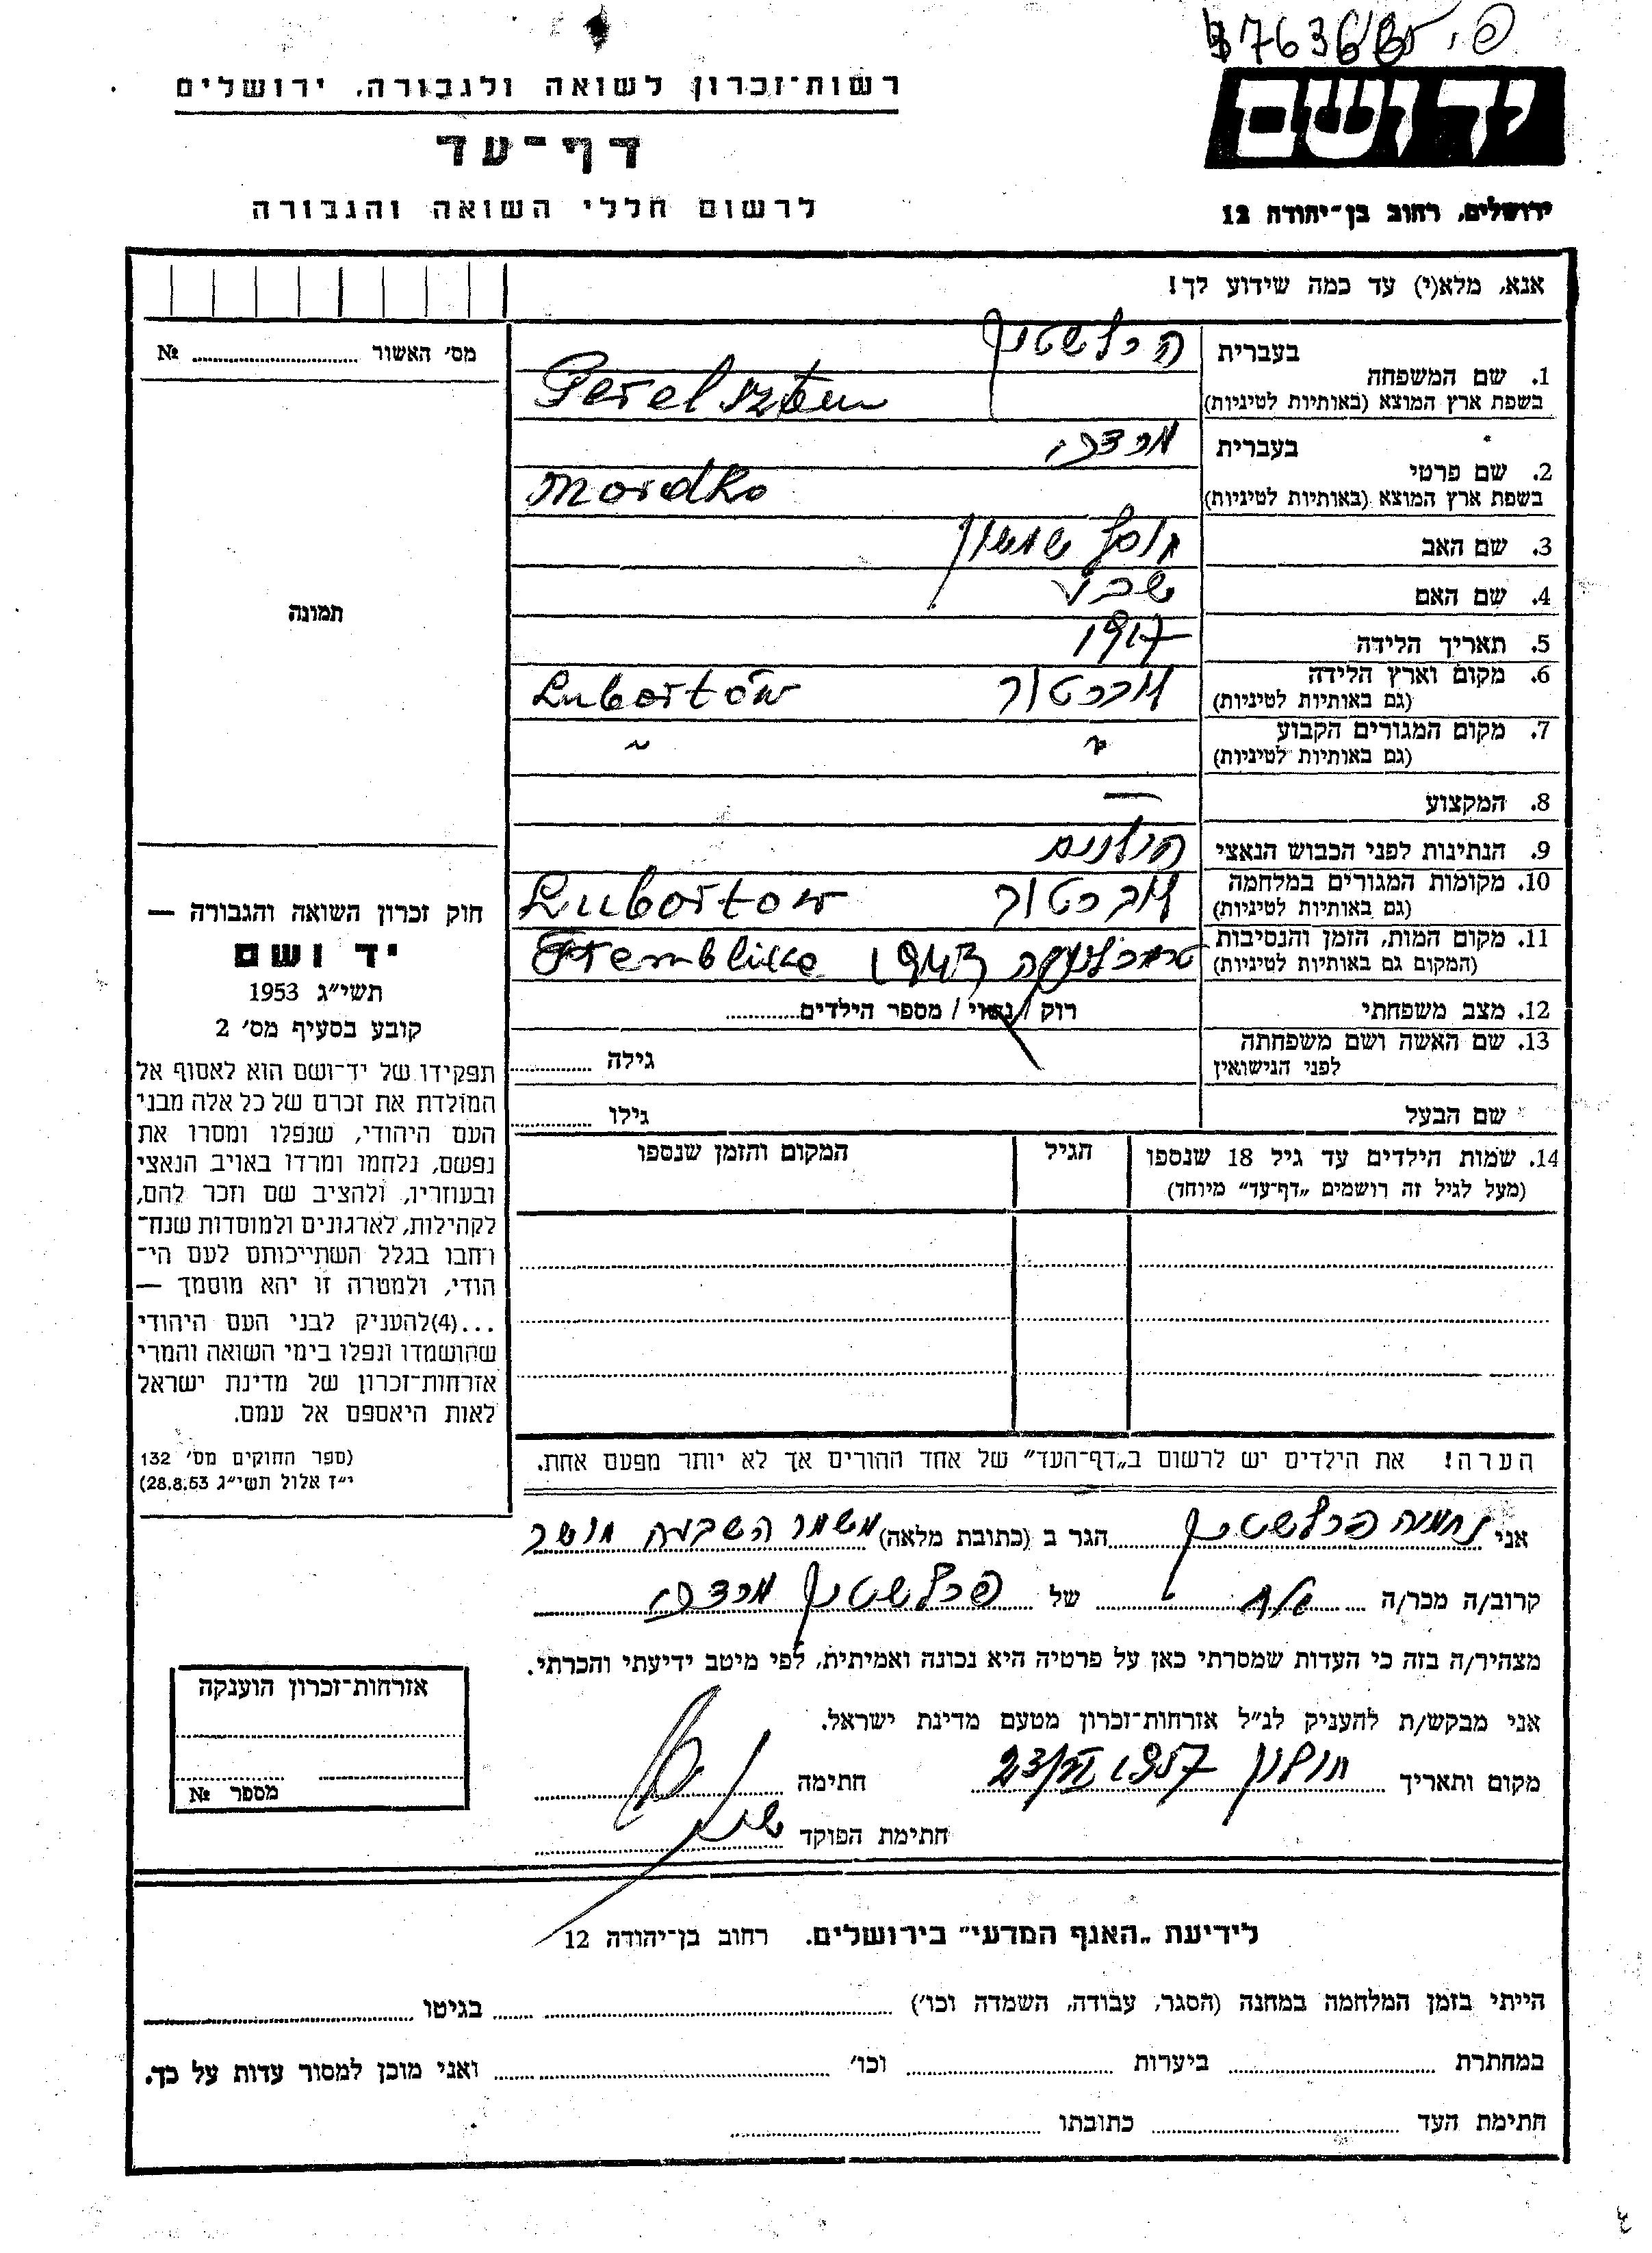 רשות־זכרון לשואה ולגבורה, ירושלים
דף־עד
לרשום חללי השואה והגבורה
ידושם
ירושלים, רחוב בן־יהודה 12
אנא, מלא(י) עד כמה שידוע לך!
מס׳ האשור № 
תמונה
1. שם המשפחה בעברית פרלשטיין
בשפת ארץ המוצא (באותיות לטיניות) Perelsztein
2. שם פרטי בעברית מרדכי
בשפת ארץ המוצא (באותיות לטיניות) Mordko
3. שם האב יוסף שמעון
4. שם האם שבע
5. תאריך הלידה 1917
6. מקום וארץ הלידה
(גם באותיות לטיניות) לוברטוב Lubortów
7. מקום המגורים הקבוע
(גם באותיות לטיניות) " "
8. המקצוע —
9. הנתינות לפני הכבוש הנאצי פולנית
10. מקומות המגורים במלחמה
(גם באותיות לטיניות) לוברטוב Lubortow
11. מקום המות, הזמן והנסיבות
(המקום גם באותיות לטיניות) טרמבלינקה 1943 Tremblinka
12. מצב משפחתי רוק / נשוי / מספר הילדים
13. שם האשה ושם משפחתה
לפני הנישואין גילה
שם הבעל גילו
14. שמות הילדים עד גיל 18 שנספו הגיל המקום והזמן שנספו
(מעל לגיל זה רושמים „דף־עד” מיוחד)
הערה! את הילדים יש לרשום ב„דף־העד” של אחד ההורים אך לא יותר מפעם אחת.
חוק זכרון השואה והגבורה —
יד ושם
תשי״ג 1953
קובע בסעיף מס׳ 2
תפקידו של יד־ושם הוא לאסוף אל
המולדת את זכרם של כל אלה מבני
העם היהודי, שנפלו ומסרו את
נפשם, נלחמו ומרדו באויב הנאצי
ובעוזריו, ולהציב שם וזכר להם,
לקהילות, לארגונים ולמוסדות שנח־
רחבו בגלל השתייכותם לעם הי־
הודי, ולמטרה זו יהא מוסמך —
...(4)להעניק לבני העם היהודי
שהושמדו ונפלו בימי השואה והמרי
אזרחות־זכרון של מדינת ישראל
לאות היאספם אל עמם.
(ספר החוקים מס׳ 132
י״ז אלול תשי״ג 28.8.53)
אני נחמיה פרלשטיין הגר ב (כתובת מלאה) משמר השבעה מושב
קרוב/ה מכר/ה אח של פרלשטיין מרדכי
מצהיר/ה בזה כי העדות שמסרתי כאן על פרטיה היא נכונה ואמיתית, לפי מיטב ידיעתי והכרתי.
אני מבקש/ת להעניק לנ״ל אזרחות־זכרון מטעם מדינת ישראל.
מקום ותאריך חולון 1957 חתימה
חתימת הפוקד
אזרחות־זכרון הוענקה
מספר №
לידיעת „האגף המדעי” בירושלים. רחוב בן־יהודה 12
הייתי בזמן המלחמה במחנה (הסגר, עבודה, השמדה וכו׳) בגיטו
במחתרת ביערות וכו׳ ואני מוכן למסור עדות על כך.
חתימת העד כתובתו